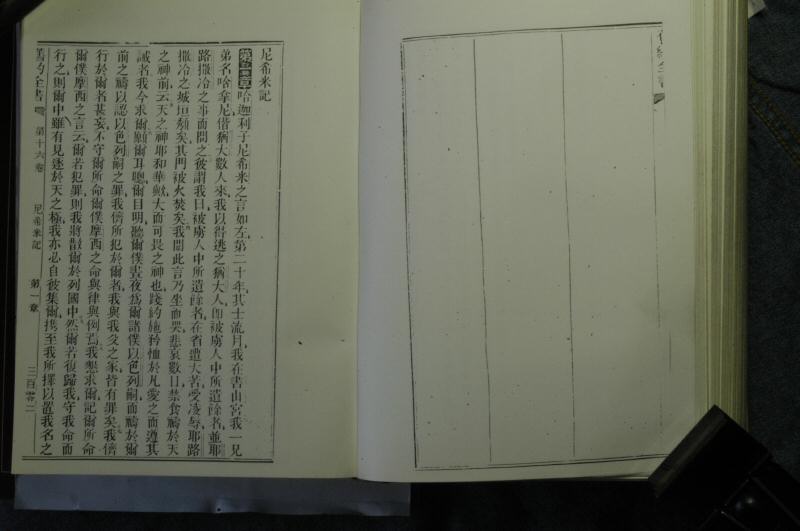 尼希米記
第一章哈迦利子尼希米之言如左、第二十年、其士流月、我在書山宮、我一兄
弟名哈拿尼偕猶大數人來、我以得逃之猶大人、即被虜人中所遺餘者、並耶
路撒冷之事而問之、彼謂我曰、被虜人中所遺餘者、在省遭大苦受凌辱、耶路
撒冷之城垣頹矣、其門被火焚矣、我聞此言乃坐而哭、悲哀數日、禁食禱於天
之神前云、天之神耶和華歟、大而可畏之神也、踐約施矜恤於凡愛之而遵其
誡者、我今求爾、願爾耳聰、爾目明、聽爾僕晝夜為爾諸僕以色列嗣、而禱於爾
前之禱、以認以色列嗣之罪、我儕所犯於爾者、我與我父之家皆有罪矣、我儕
行於爾者甚妄、不守爾所命爾僕摩西之命與律與例焉、我懇求爾記爾所命
爾僕摩西之言云、爾若犯罪、則我將散爾於列國中、然爾若復歸我、守我命而
行之、則爾中雖有見逐於天之極、我亦必自彼集爾、携至我所擇以置我名之
舊約全書 第十六卷 尼希米記 第一章 三百零二